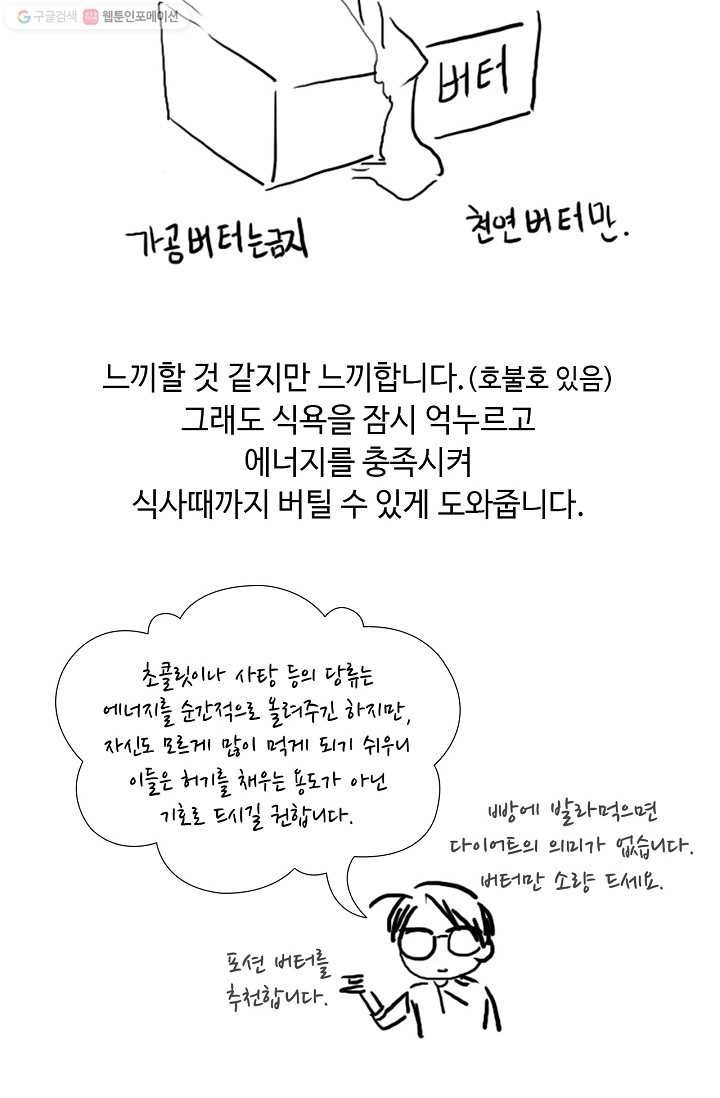 구글검색 웹툰인포메이션
버터
가공버터는금지
천연버터만.
느끼할 것 같지만 느끼합니다.(호불호 있음)
그래도 식욕을 잠시 억누르고
에너지를 충족시켜
식사때까지 버틸 수 있게 도와줍니다.
초콜릿이나 사탕 등의 당류는
에너지를 순간적으로 올려주긴 하지만,
자신도 모르게 많이 먹게 되기 쉬우니
이들은 허기를 채우는 용도가 아닌
기호로 드시길 권합니다.
빵에 발라먹으면
다이어트의 의미가 없습니다.
버터만 소량 드세요.
포션 버터를
추천합니다.